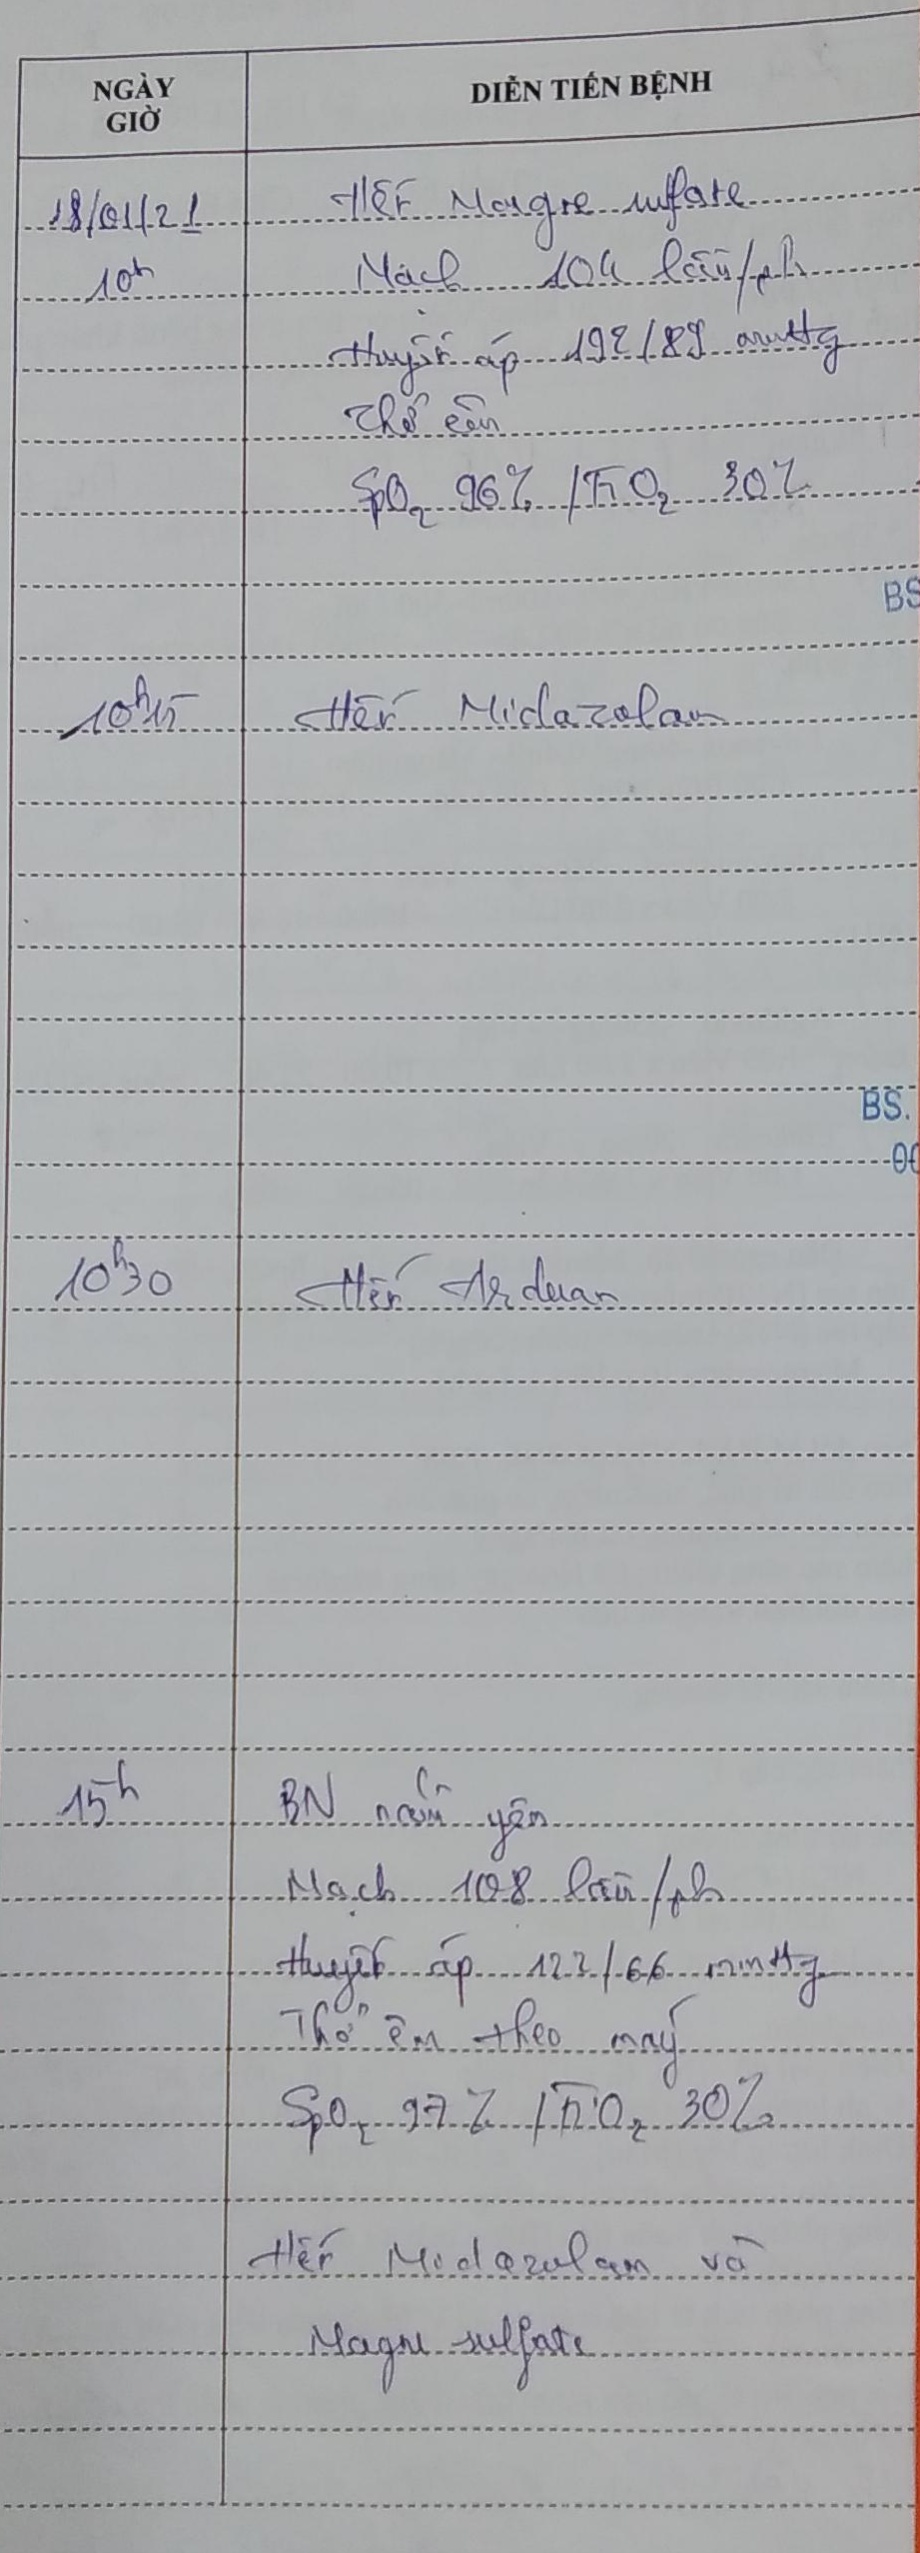 NGÀY
GIỜ
DIỄN TIẾN BỆNH
18/01/21
Hết Magne sulfate
10h
Mạch 104 lần/ph
Huyết áp 192/89 mmHg
Thở êm
SpO2 96% /FiO2 30%
BS
10h15
Hết Midazolam
BS.
10h30
Hết Arduan
15h
BN nằm yên
Mạch 108 lần/ph
Huyết áp 122/66 mmHg
Thở êm theo máy
SpO2 97% /FiO2 30%
Hết Midazolam và
Magne sulfate